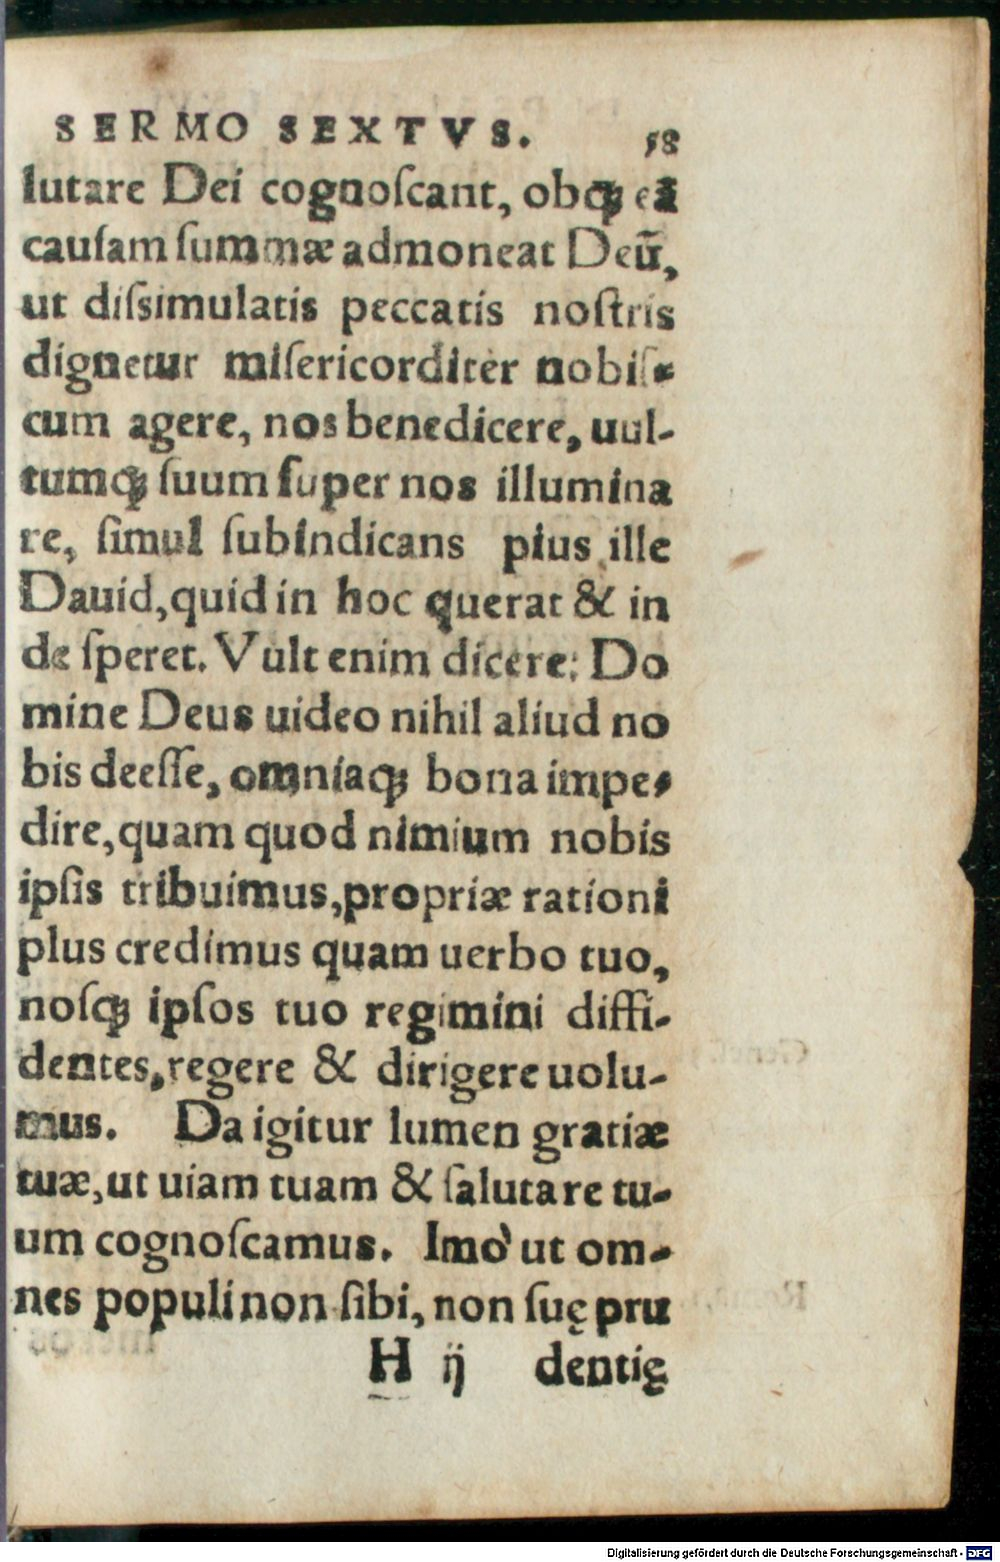 SERMO SEXTVS. 58
lutare Dei cognoſcant, obq́ꝫ eā
cauſam summæ admoneat Deū,
ut diſsimulatis peccatis noſtris
dignetur miſericorditer nobiſ-
cum agere, nos benedicere, uul-
tumq́ꝫ ſuum ſuper nos illumina
re, ſimul ſubindicans pius ille
Dauid, quid in hoc querat & in
de ſperet. Vult enim dicere: Do
mine Deus uideo nihil aliud no
bis deeſſe, omniaq́ꝫ bona impe-
dire, quam quod nimium nobis
ipſis tribuimus, propriæ rationi
plus credimus quam uerbo tuo,
noſq́ꝫ ipſos tuo regimini diffi-
dentes, regere & dirigere uolu-
mus. Da igitur lumen gratiæ
tuæ, ut uiam tuam & ſalutare tu-
um cognoſcamus. Imò ut om-
nes populi non ſibi, non ſuę pru
H ij dentię
Digitalisierung gefördert durch die Deutsche Forschungsgemeinschaft - DFG